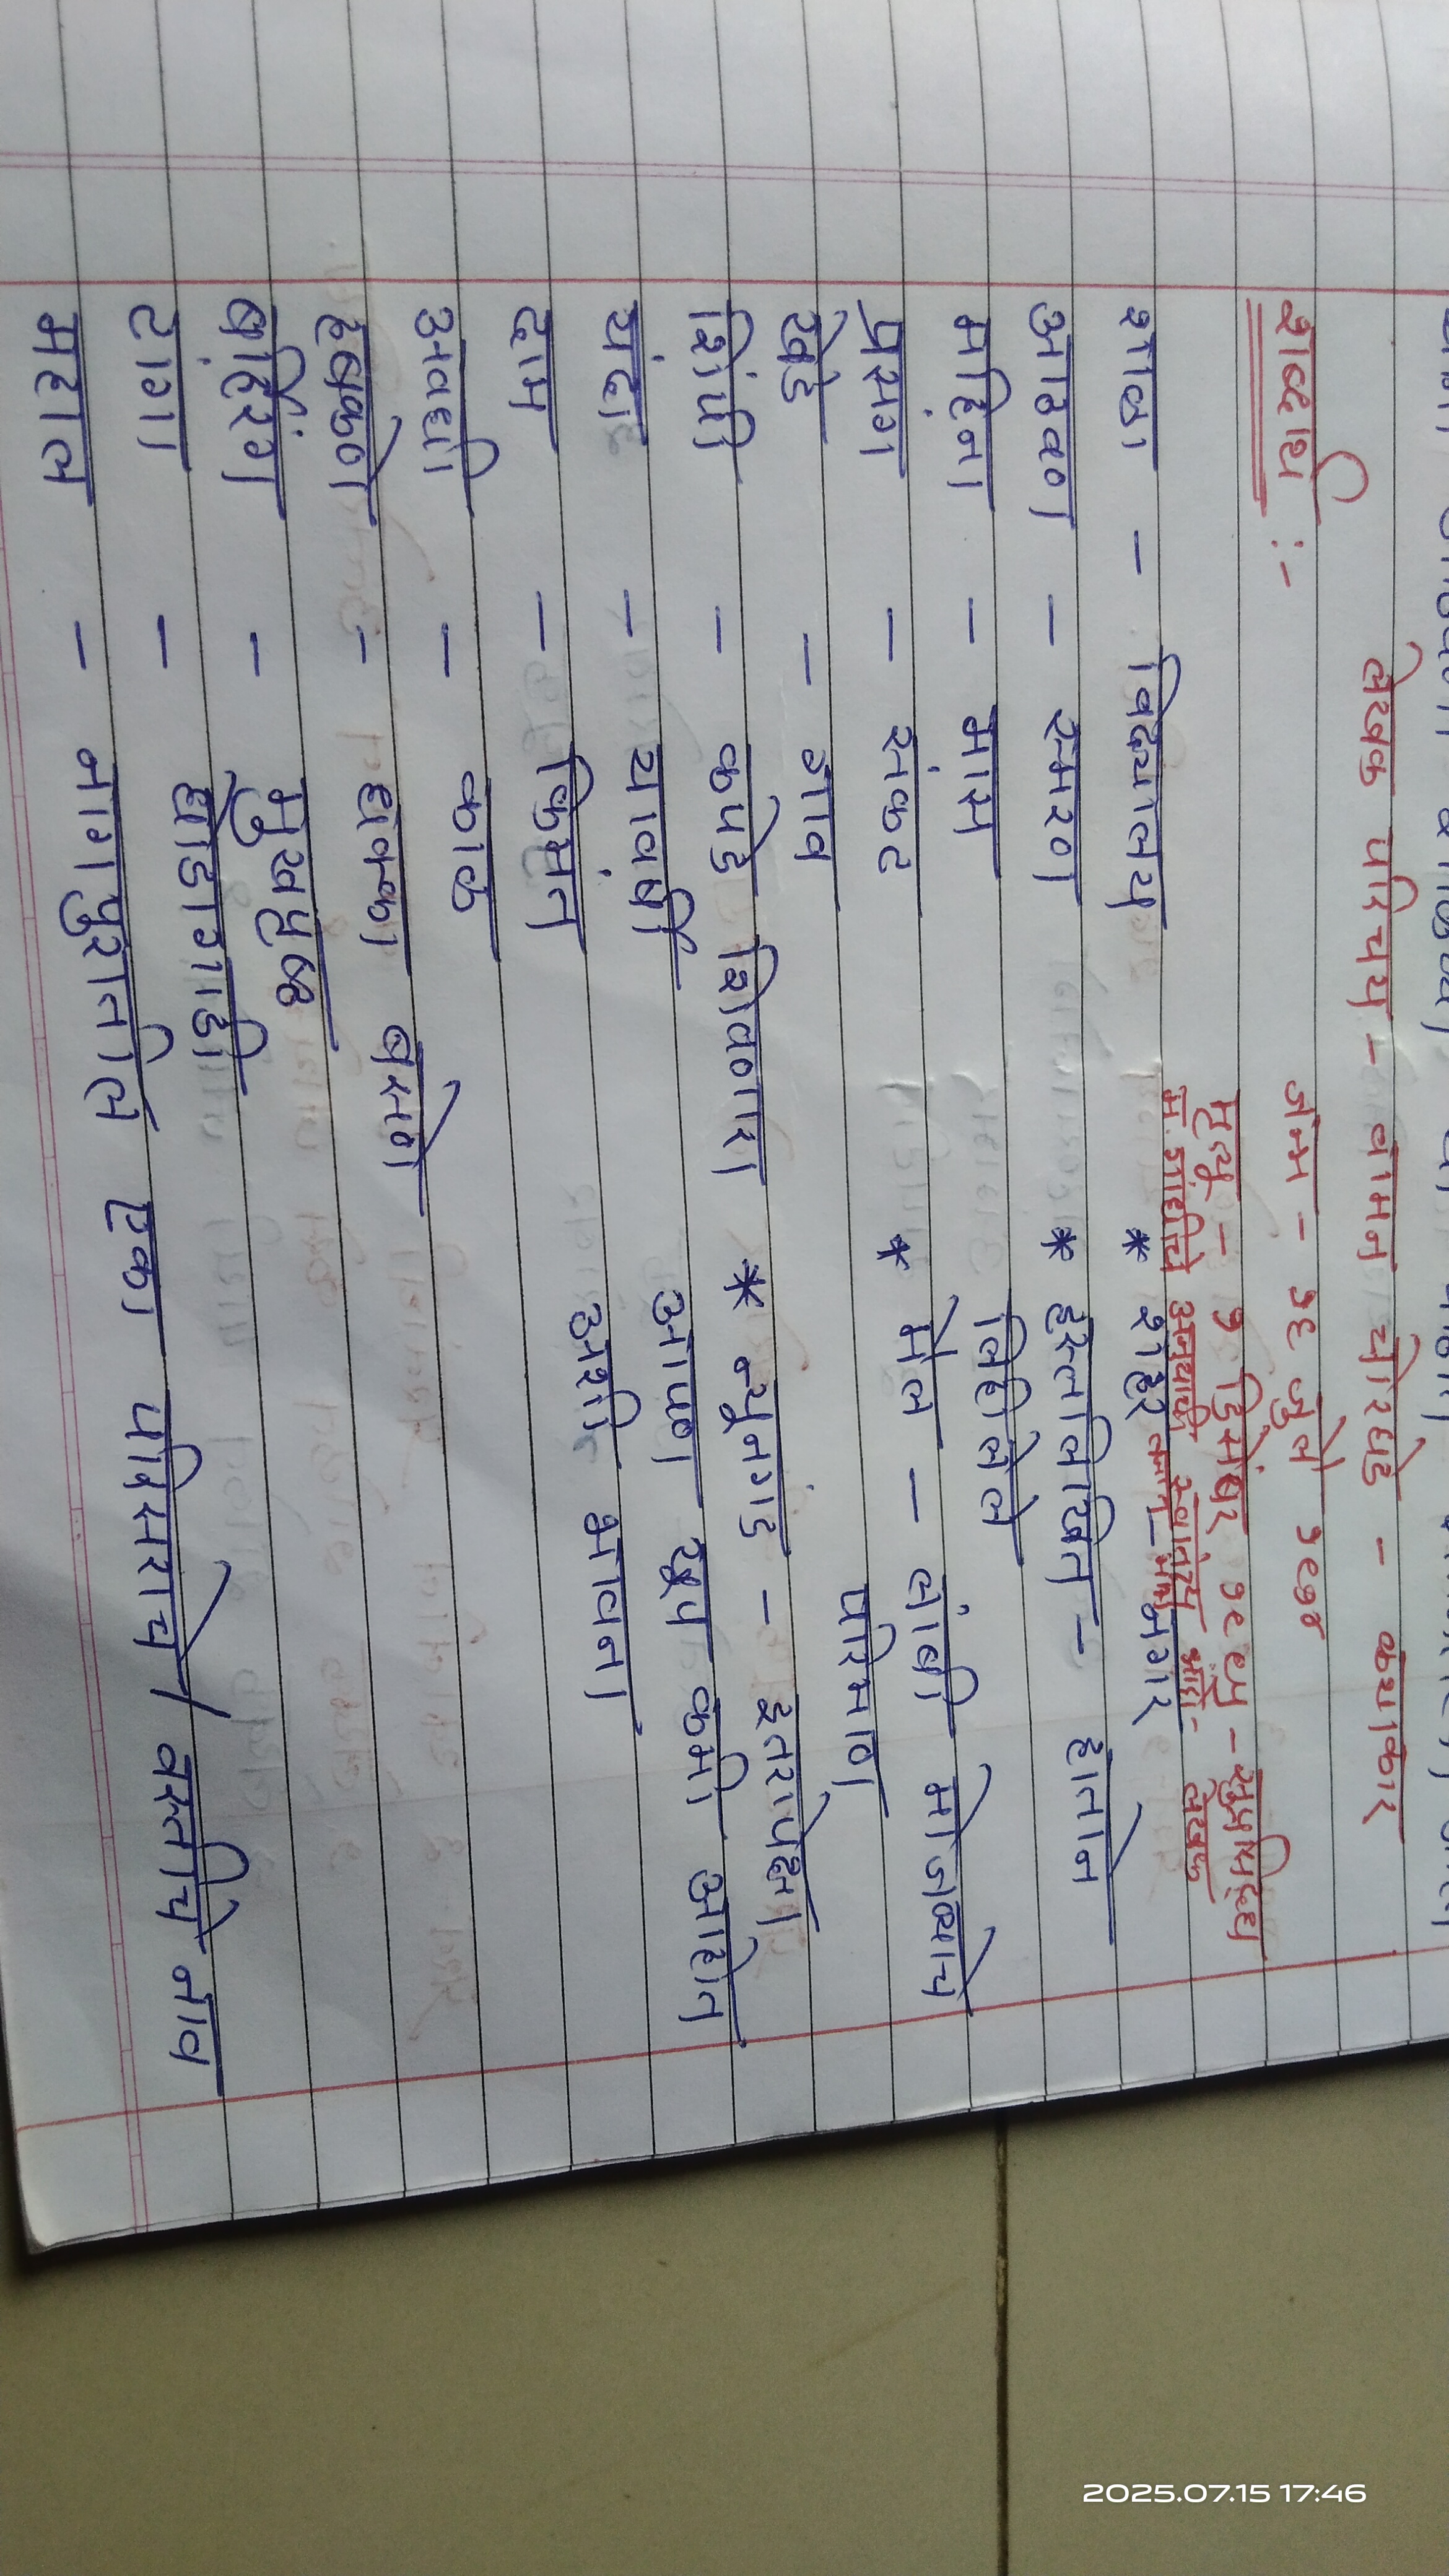 लेखक परिचय - वामन चोरघडे - कथाकार
जन्म - १६ जुलै १९१४
शब्दार्थ :-
मृत्यू - १ डिसेंबर १९९५ - सुप्रसिद्ध
म. गांधीचे अनुयायी स्वातंत्र्य लेखक
शाळा - विद्यालय * शहर - नगर
आठवण - स्मरण * हस्तलिखित - हाताने
लिहीलेले
महिना - मास
प्रसंग - संकट * मैल - लांबी मोजण्याचे
परिमाण
खेडे - गाव
शिंपी - कपडे शिवणारा * न्यूनगंड - इतरापेक्षा
यंदा - यावर्षी आपण खूप कमी आहोत
अशी भावना
दाम - किंमत
अवधी - काळ
हबकणे - धक्का बसणे
बहिरंग - मुखपृष्ठ
टांगा - घोडागाडी
महाल - नागपुरातील एका परिसराचे / वस्तीचे नाव
2025.07.15 17:46